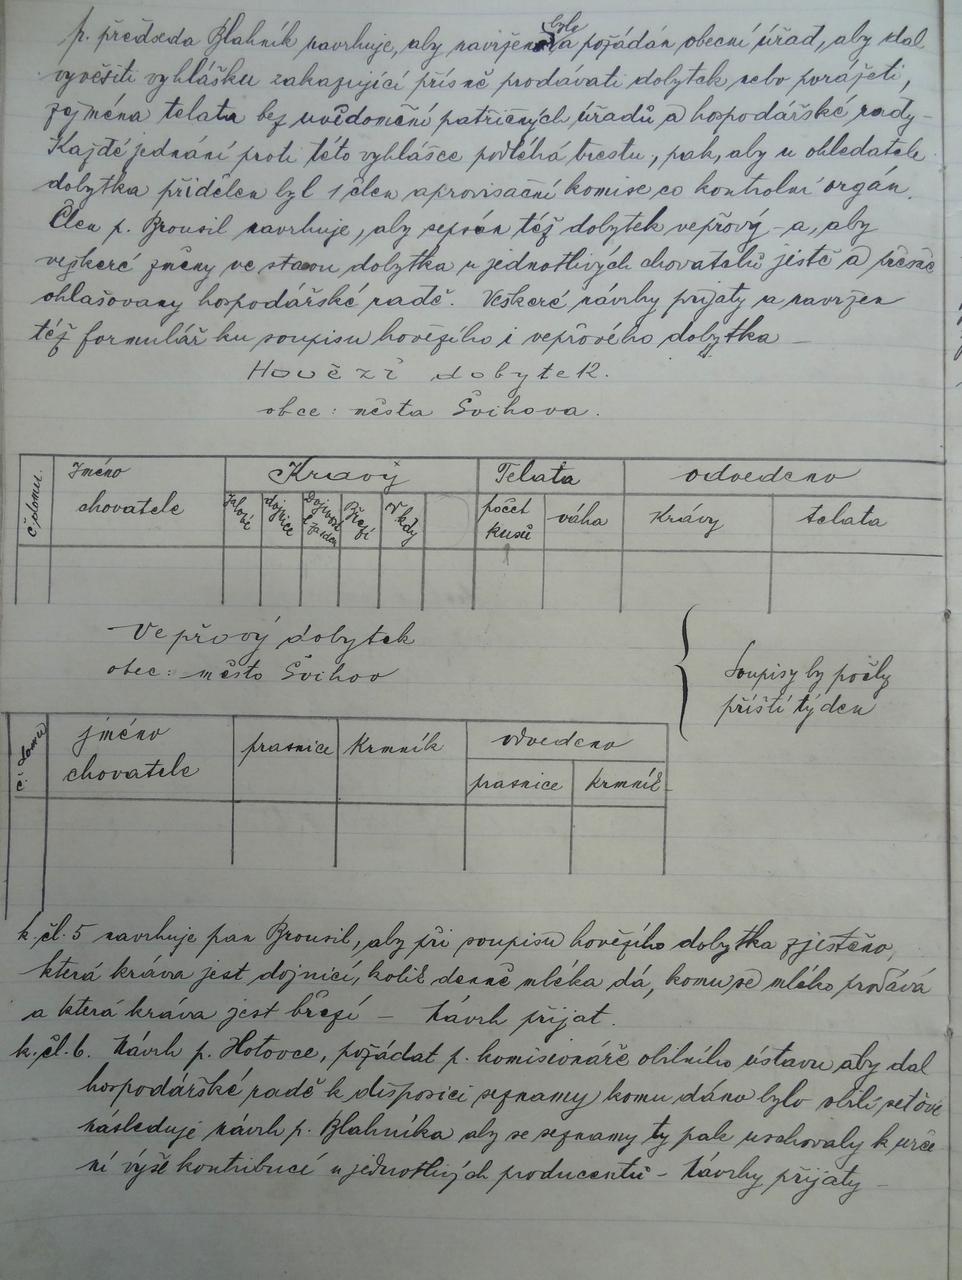 p. předseda Blahník navrhuje, aby navrženo bylo
a požádán obecní úřad, aby dal
vyvěsiti vyhlášku zakazující přísně prodávati dobytek nebo porážeti,
zejména telata bez uvědomění patřičných úřadů a hospodářské rady -
Každé jednání proti této vyhlášce podléhá trestu, pak, aby u ohledatele
dobytka přidělen byl 1 člen aprovisační komise co kontrolní orgán.
Člen p. Brousil navrhuje, aby sepsán též dobytek vepřový - a, aby
veškeré změny ve stavu dobytka u jednotlivých chovatelů jistě a přesně
ohlašovany hospodářské radě. Veškeré návrhy přijaty a navržen
též formulář ku soupisu hovězího i vepřového dobytka -
Hovězí dobytek.
obce: města Švihova.
č. domu
Jméno
chovatele
Krávy
Jalové
dojnice
Březí
Kdy
Telata
počet
kusů
váha
odvedeno
Krávy
telata
Vepřový dobytek
obec: město Švihov
Soupisy by počly
příští týden
č. domu
jméno
chovatele
prasnice
Krmník
odvedeno
prasnice
Krmník
k. čl. 5 navrhuje pan Brousil, aby při soupisu hovězího dobytka zjištěno,
která kráva jest dojnicí, kolik denně mléka dá, komu se mléko prodává
a která kráva jest březí - Návrh přijat.
k. čl. 6. Návrh p. Hotovce, požádat p. komisionáře obilního ústavu aby dal
hospodářské radě k disposici seznamy komu dáno bylo obilí seťové
následuje návrh p. Blahníka aby se seznamy ty pak uschovaly k urče
ní výše kontribucí u jednotlivých producentů - Návrhy přijaty -